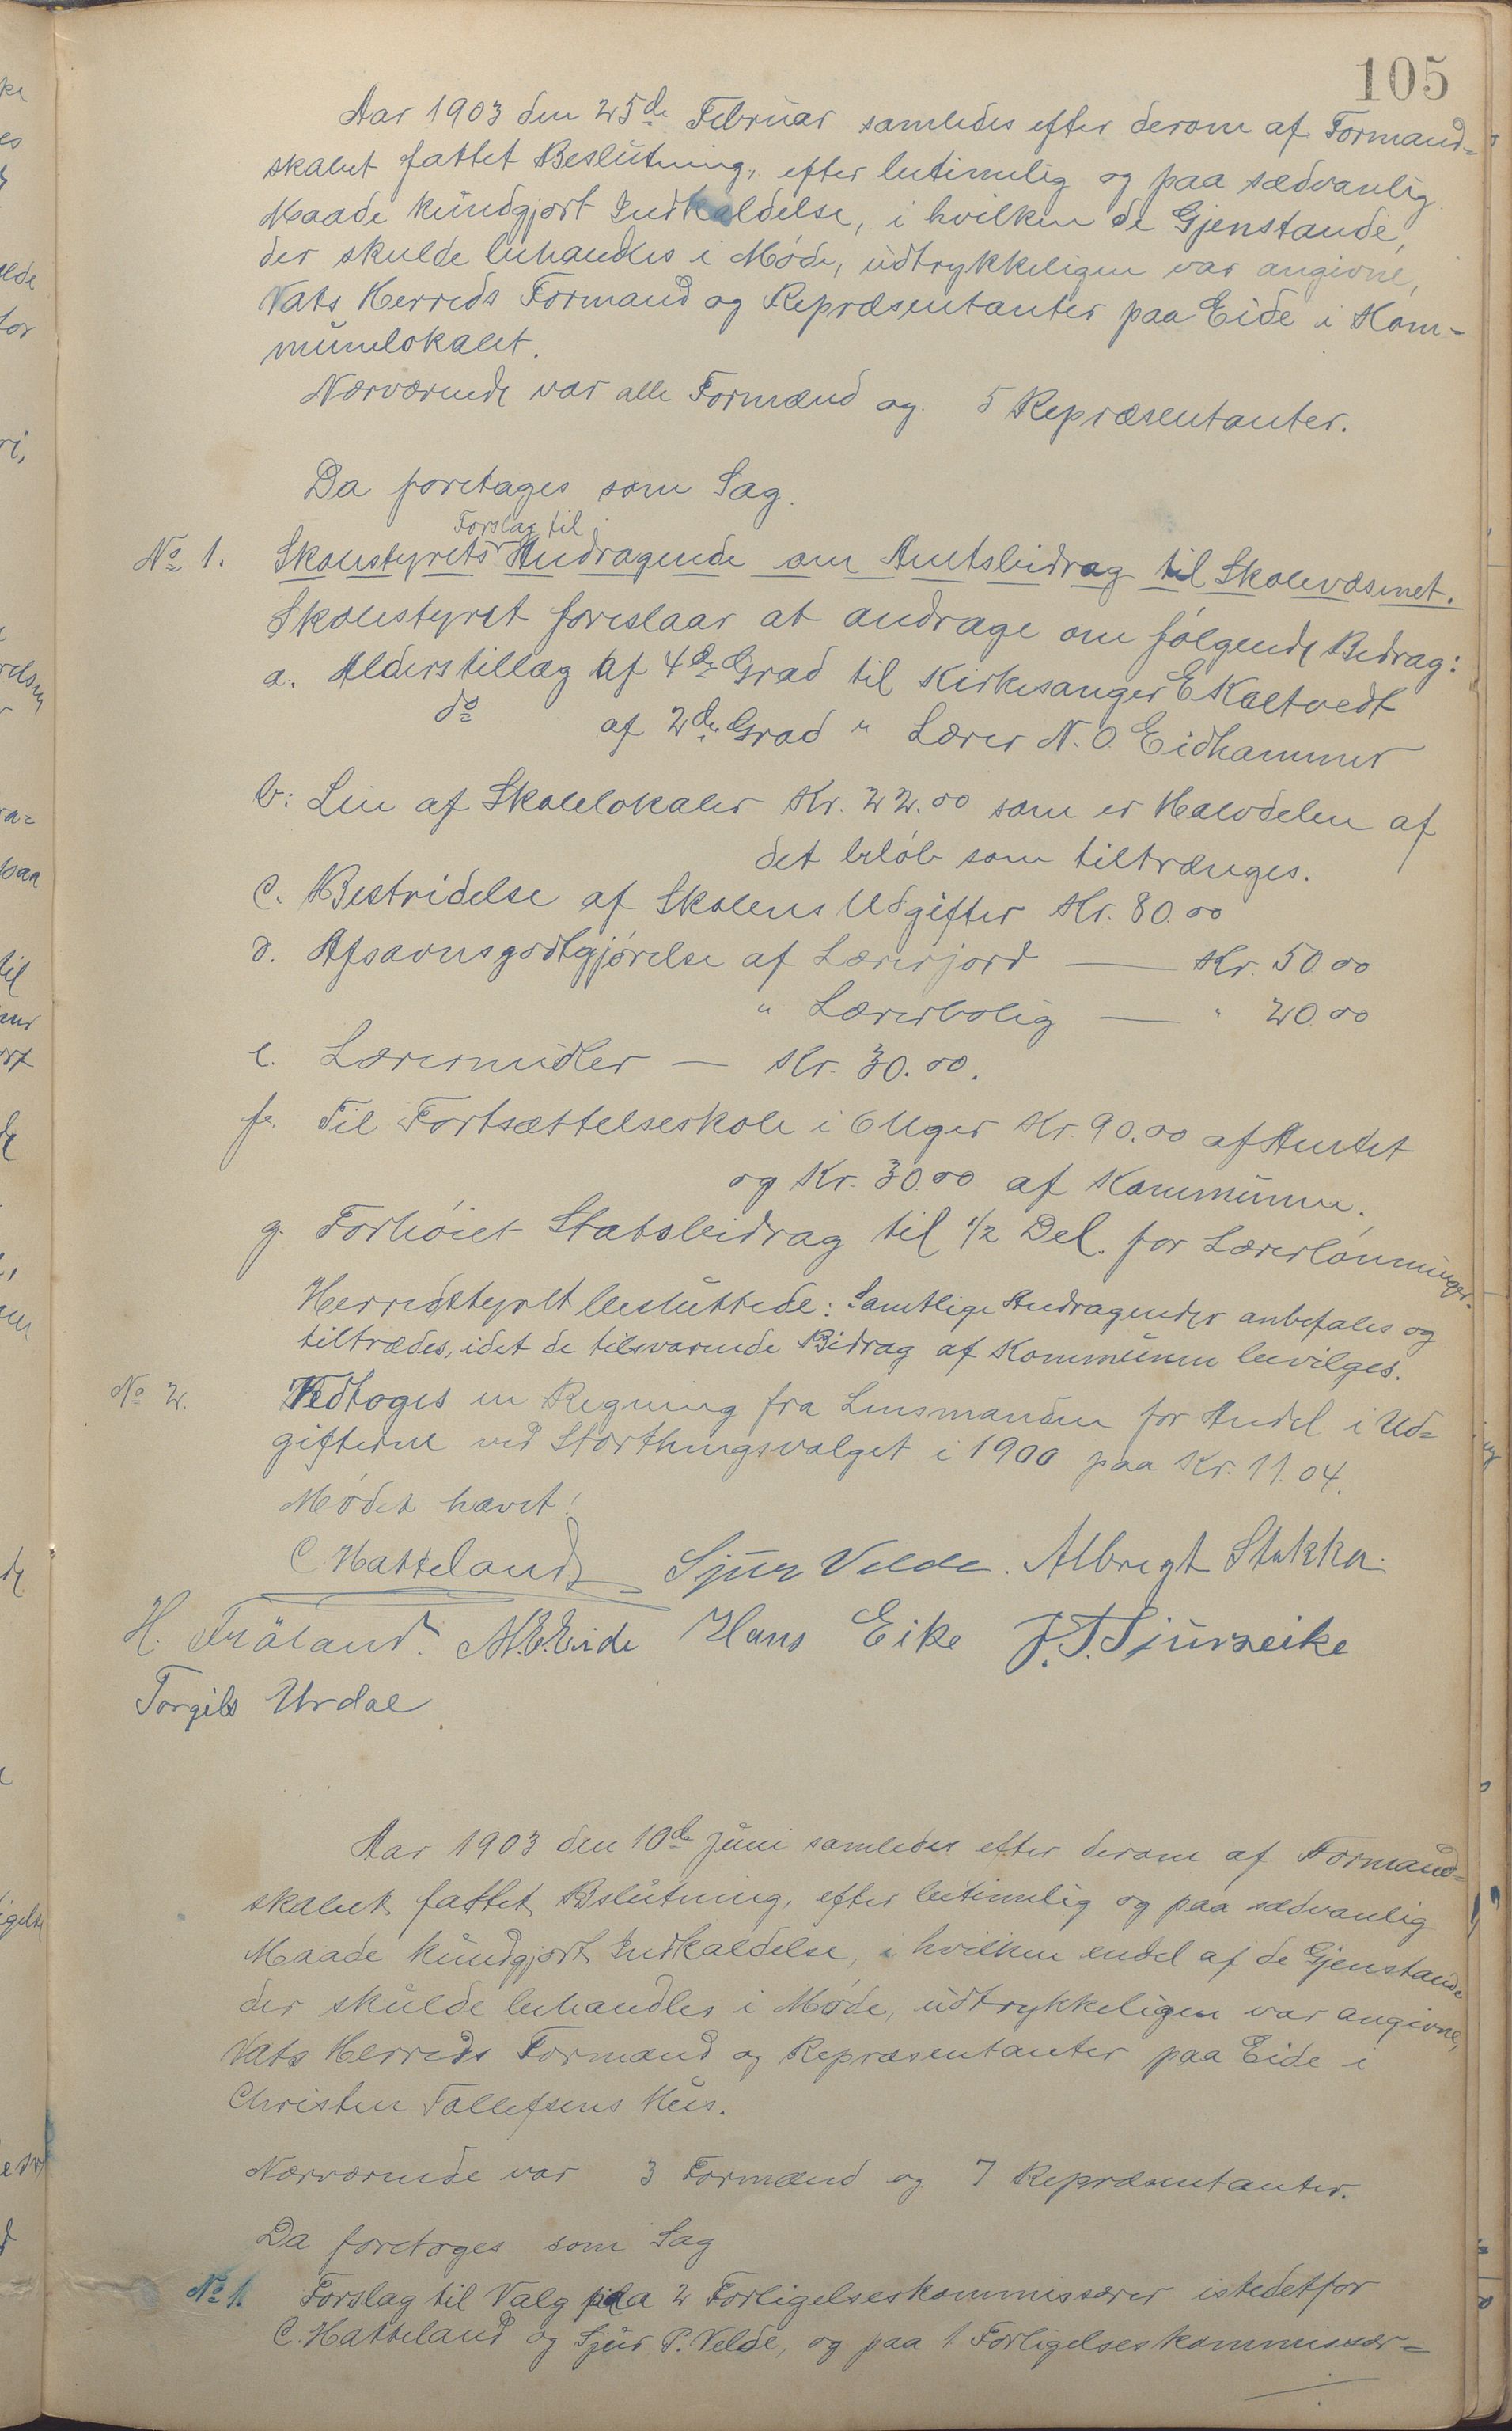 105
Aar 1903 den 25de Februar samledes efter derom af Formand-
skabet fattet Beslutning, efter betimelig og paa sædvanlig
Maade kundgjort Indkaldelse, i hvilken de Gjenstande,
der skulde behandles i Møde, udtrykkeligen var angivne,
Vats Herreds Formænd og Repræsentanter paa Eide i Kom-
munelokalet.
Nærværende var alle Formænd og 5 Repræsentanter.
Da foretages som Sag.
Forslag til
No 1. Skolestyrets Andragende om Amtsbidrag til Skolevæsenet.
Skolestyret foreslaar at andrage om følgende Bedrag:
a. Alderstillæg af 4de Grad til Kirkesanger E Kaltvedt
do af 2den Grad " Lærer N. O. Eidhammer
b: Leie af Skolelokaler Kr. 22.00 som er Halvdelen af
det beløb som tiltrænges.
c. Bestridelse af Skolens Udgifter Kr. 80.00
d. Afsavnsgodtgjørelse af Lærerjord — Kr. 50 00
" Lærerbolig — " 20 00
e. Læremidler — Kr. 30.00.
f. Til Fortsættelseskole i 6 Uger Kr. 90.00 af Amtet
og Kr. 30.00 af Kommunen.
g. Forhøiet Statsbidrag til 1/2 Del. for Lærerlønninger.
Herredstyret besluttede: Samtlige Andragender anbefales og
tiltrædes, idet de tilsvarende Bidrag af Kommunen bevilges.
No 2. Vedtoges en Regning fra Lensmanden for Andel i Ud-
gifterne ved Storthingsvalget i 1900 paa Kr. 11.04.
Mødet hævet!
C. Hatteland Sjur Velde. Albregt Stakka.
H. Frøland. N. E. Eide Hans Eike J. T. Sjurseike
Torgils Urdal
Aar 1903 den 10de Juni samledes efter derom af Formand-
skabet fattet Bslutning, efter betimelig og paa sædvanlig
Maade kundgjort Indkaldelse, i hvilken endel af de Gjenstande
der skulde behandles i Møde, udtrykkeligen var angivne,
Vats Herreds Formænd og Repræsentanter paa Eide i
Christen Tollefsens Hus.
Nærværende var 3 Formænd og 7 Repræsentanter.
Da foretoges som Sag
No 1. Forslag til Valg paa 2 Forligelseskommissærer istedetfor
C. Hatteland og Sjur P. Velde, og paa 1 Forligelseskommissær-